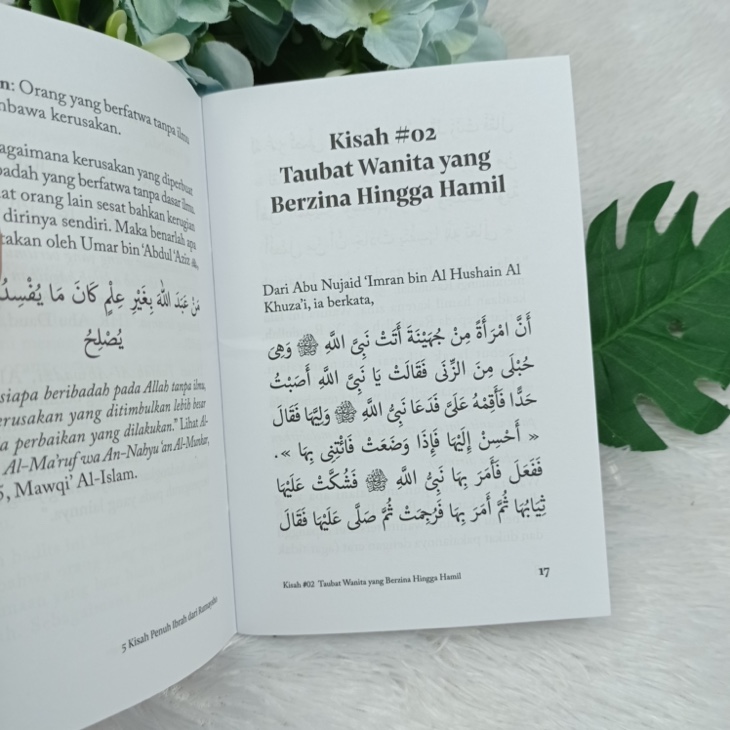 n: Orang yang berfatwa tanpa ilmu
bawa kerusakan.
agaimana kerusakan yang diperbuat
badah yang berfatwa tanpa dasar ilmu.
at orang lain sesat bahkan kerugian
dirinya sendiri. Maka benarlah apa
takan oleh Umar bin 'Abdul 'Aziz
مَنْ عَبَدَ اللهَ بِغَيْرِ عِلْمٍ كَانَ مَا يُفْسِدُ
يُصْلِحُ
siapa beribadah pada Allah tanpa ilmu,
erusakan yang ditimbulkan lebih besar
a perbaikan yang dilakukan." Lihat Al-
Al-Ma'ruf wa An-Nahyu 'an Al-Munkar,
5, Mawqi' Al-Islam.
5 Kisah Penuh Ibrah dari Ramaysho
Kisah #02
Taubat Wanita yang
Berzina Hingga Hamil
Dari Abu Nujaid 'Imran bin Al Hushain Al
Khuza'i, ia berkata,
أَنَّ امْرَأَةً مِنْ جُهَيْنَةَ أَتَتْ نَبِىَّ اللَّهِ ﷺ وَهِىَ
حُبْلَى مِنَ الزِّنَى فَقَالَتْ يَا نَبِىَّ اللَّهِ أَصَبْتُ
حَدًّا فَأَقِمْهُ عَلَىَّ فَدَعَا نَبِىُّ اللَّهِ ﷺ وَلِيَّهَا فَقَالَ
« أَحْسِنْ إِلَيْهَا فَإِذَا وَضَعَتْ فَائْتِنِى بِهَا ».
فَفَعَلَ فَأَمَرَ بِهَا نَبِىُّ اللَّهِ ﷺ فَشُكَّتْ عَلَيْهَا
ثِيَابُهَا ثُمَّ أَمَرَ بِهَا فَرُجِمَتْ ثُمَّ صَلَّى عَلَيْهَا فَقَالَ
Kisah #02 Taubat Wanita yang Berzina Hingga Hamil 17